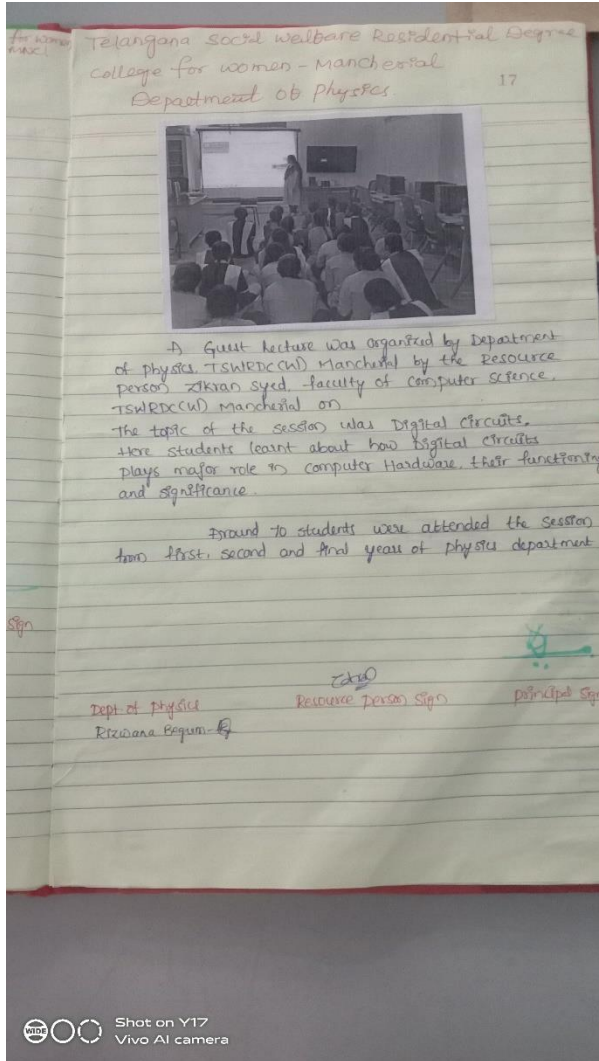 for women
MNCL
Telangana Social Welbare Residential Degree
College for women - Mancherial
Department ob Physics
17
A Guest Lecture was organized by Department
of physics, TSWRDC(W) Mancherial by the Resource
person zikran syed, faculty of computer science,
TSWRDC(W) Mancherial on
The topic of the session was Digital Circuits.
Here students learnt about how Digital circuits
plays major role in computer Hardware, their functioning
and significance.
Around 70 students were attended the session
from first, second and final years of physics department
sign
Dept of physics
Resource person sign
principal sign
Rizwana Begum
WIDE
Shot on Y17
Vivo AI camera